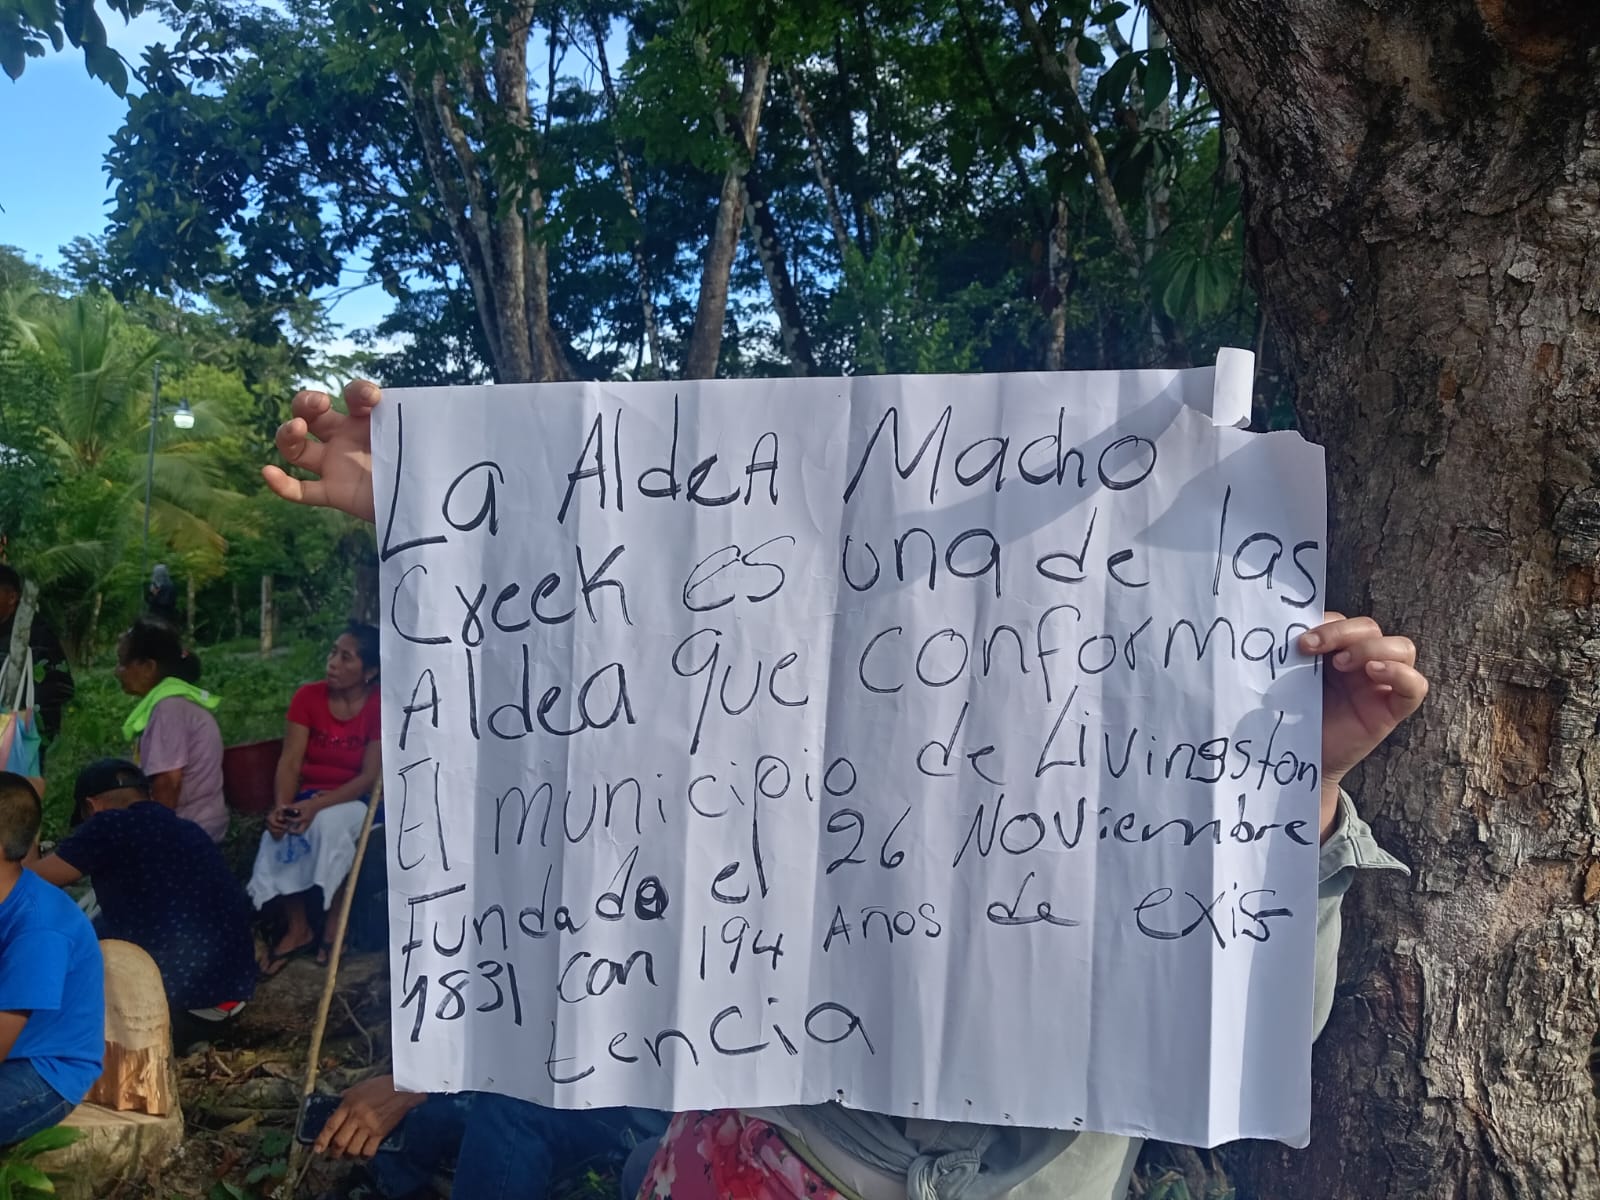 La AldeA Macho
Creek es una de las
Aldea que conforman
El municipio de Livingston
Fundado el 26 Noviembre
1831 con 194 Años de exis
tencia